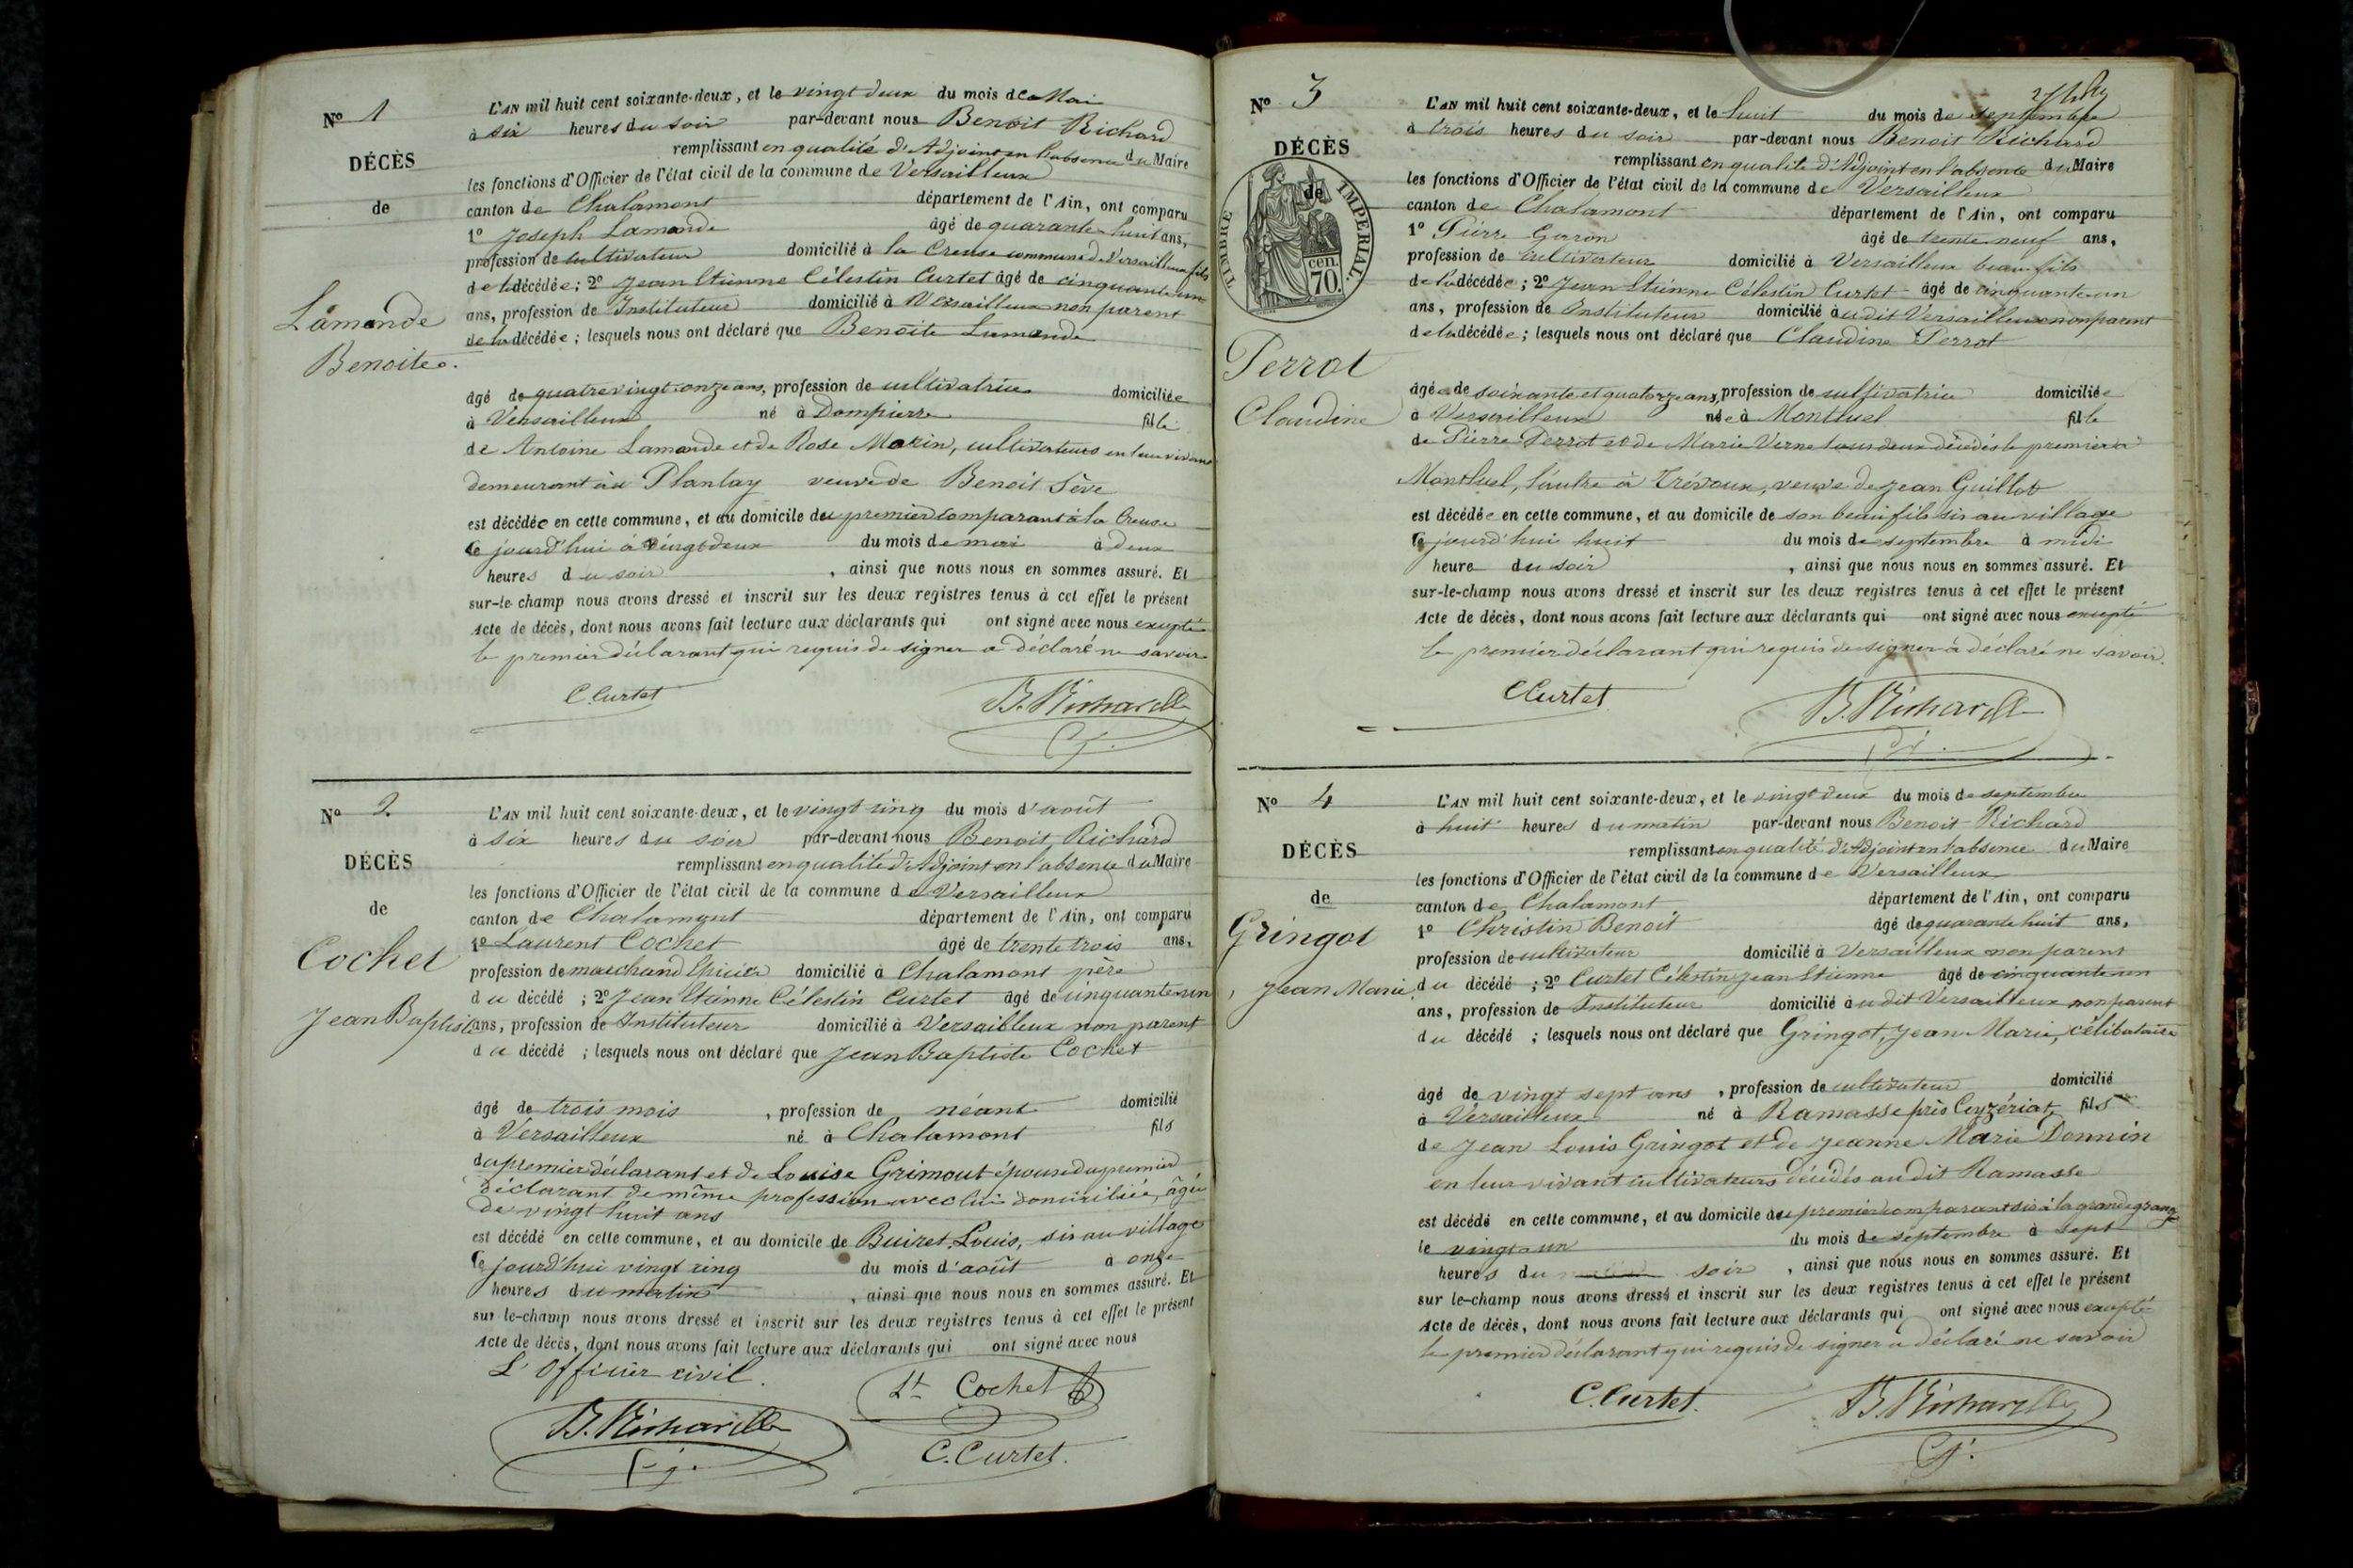 Nº 1
DÉCÈS
de
Lamande
Benoite.
L'AN mil huit cent soixante-deux, et le vingt deux du mois de Mai
à six heures du soir par-devant nous Benoit Richard
remplissant en qualité d'Adjoint en l'absence du Maire
les fonctions d'Officier de l'état civil de la commune de Versailleux
canton de Chalamont département de l'Ain, ont comparu
1º Joseph Lamande âgé de quarante-huit ans,
profession de cultivateur domicilié à la Creuse commune de Versailleux fils
de la décédée ; 2º Jean Etienne Célestin Curtet âgé de cinquante un
ans, profession de Instituteur domicilié à Versailleux non parent
de la décédée ; lesquels nous ont déclaré que Benoite Lamande
âgé de quatre vingt-onze ans, profession de cultivatrice domiciliée
à Versailleux né à Dompierre fille
de Antoine Lamande et de Rose Morin, cultivateurs en leur vivant
demeurant au Plantay veuve de Benoit Sève
est décédée en cette commune, et au domicile du premier comparant à la Creuse
ce jourd'hui à vingt deux du mois de mai à deux
heures du soir , ainsi que nous nous en sommes assuré. Et
sur-le-champ nous avons dressé et inscrit sur les deux registres tenus à cet effet le présent
Acte de décès, dont nous avons fait lecture aux déclarants qui ont signé avec nous excepté
le premier déclarant qui requis de signer a déclaré ne savoir
C. Curtet B. Richard
Nº 2
DÉCÈS
de
Cochet
Jean Baptiste
L'AN mil huit cent soixante-deux, et le vingt cinq du mois d'août
à six heures du soir par-devant nous Benoit Richard
remplissant en qualité d'Adjoint en l'absence du Maire
les fonctions d'Officier de l'état civil de la commune de Versailleux
canton de Chalamont département de l'Ain, ont comparu
1º Laurent Cochet âgé de trente trois ans,
profession de marchand Epicier domicilié à Chalamont père
du décédé ; 2º Jean Etienne Célestin Curtet âgé de cinquante un
ans, profession de Instituteur domicilié à Versailleux non parent
du décédé ; lesquels nous ont déclaré que Jean Baptiste Cochet
âgé de trois mois , profession de néant domicilié
à Versailleux né à Chalamont fils
du premier déclarant et de Louise Grimout épouse du premier
déclarant de même profession avec lui domiciliée, âgée
de vingt huit ans
est décédé en cette commune, et au domicile de Buiret Louis, sis au village
ce jourd'hui vingt cinq du mois d'août à onze
heures du matin , ainsi que nous nous en sommes assuré. Et
sur le-champ nous avons dressé et inscrit sur les deux registres tenus à cet effet le présent
Acte de décès, dont nous avons fait lecture aux déclarants qui ont signé avec nous
L'Officier civil.
Lt Cochet
B. Richard
C. Curtet.
Nº 3
DÉCÈS
de
TIMBRE IMPÉRIAL.
cen.
70.
Perrot
Claudine
L'AN mil huit cent soixante-deux, et le huit du mois de septembre
à trois heures du soir par-devant nous Benoit Richard
remplissant en qualité d'Adjoint en l'absence du Maire
les fonctions d'Officier de l'état civil de la commune de Versailleux
canton de Chalamont département de l'Ain, ont comparu
1º Pierre Garon âgé de trente neuf ans,
profession de cultivateur domicilié à Versailleux beau-fils
de la décédée ; 2º Jean Etienne Célestin Curtet âgé de cinquante-un
ans, profession de Instituteur domicilié audit Versailleux non parent
de la décédée ; lesquels nous ont déclaré que Claudine Perrot
âgée de soixante et quatorze ans, profession de cultivatrice domiciliée
à Versailleux née à Montluel fille
de Pierre Perrot et de Marie Verne tous deux décédés le premier à
Montluel, l'autre à Trévoux, veuve de Jean Guillot
est décédée en cette commune, et au domicile de son beau fils sis au village
ce jourd'hui huit du mois de septembre à midi
heure du soir , ainsi que nous nous en sommes assuré. Et
sur-le-champ nous avons dressé et inscrit sur les deux registres tenus à cet effet le présent
Acte de décès, dont nous avons fait lecture aux déclarants qui ont signé avec nous excepté
le premier déclarant qui requis de signer a déclaré ne savoir.
C Curtet B. Richard
Nº 4
DÉCÈS
de
Gringot
Jean Marie.
L'AN mil huit cent soixante-deux, et le vingt deux du mois de septembre
à huit heures du matin par-devant nous Benoit Richard
remplissant en qualité d'Adjoint en l'absence du Maire
les fonctions d'Officier de l'état civil de la commune de Versailleux
canton de Chalamont département de l'Ain, ont comparu
1º Christin Benoit âgé de quarante huit ans,
profession de cultivateur domicilié à Versailleux non parent
du décédé ; 2º Curtet Célestin Jean Etienne âgé de cinquante un
ans, profession de Instituteur domicilié audit Versailleux non parent
du décédé ; lesquels nous ont déclaré que Gringot, Jean Marie, célibataire
âgé de vingt sept ans , profession de cultivateur domicilié
à Versailleux né à Ramasse près Ceyzériat, fils
de Jean Louis Gringot et de Jeanne Marie Donnin
en leur vivant cultivateurs décédés audit Ramasse
est décédé en cette commune, et au domicile du premier comparant sis à la grande grange
le vingt-un du mois de septembre à sept
heures du soir , ainsi que nous nous en sommes assuré. Et
sur le-champ nous avons dressé et inscrit sur les deux registres tenus à cet effet le présent
Acte de décès, dont nous avons fait lecture aux déclarants qui ont signé avec nous excepté
le premier déclarant qui requis de signer a déclaré ne savoir
C. Curtet. B. Richard